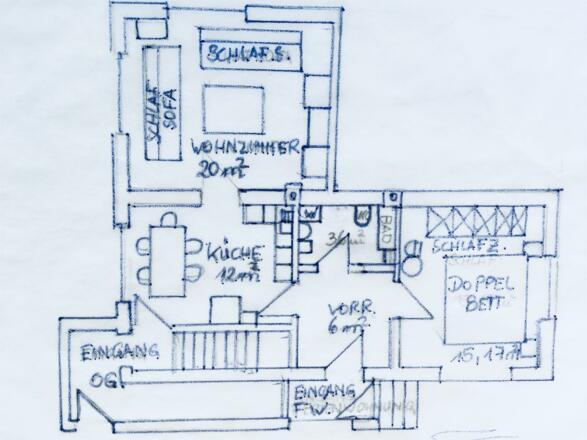 SCHLAF S.
SCHLAF
SOFA
WOHNZIMMER
20 m²
KÜCHE
12 m²
BAD
SCHLAFZ.
DOPPEL
BETT
VORR.
6 m²
EINGANG
OG
EINGANG
F.W.